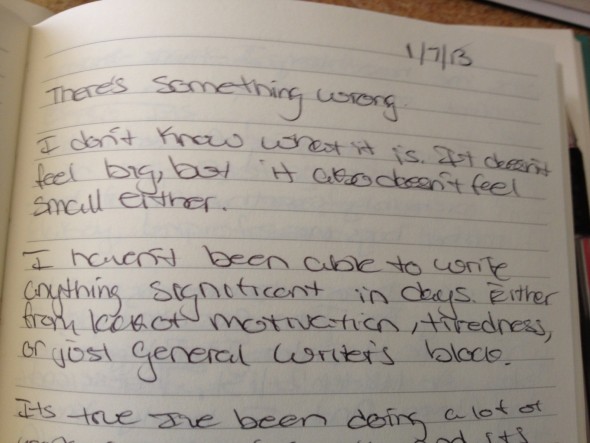 1/7/13
There's something wrong.
I don't know what it is. It doesn't
feel big, but it also doesn't feel
small either.
I haven't been able to write
anything significant in days. Either
from lack of motivation, tiredness,
or just general writer's block.
Its true I've been doing a lot of